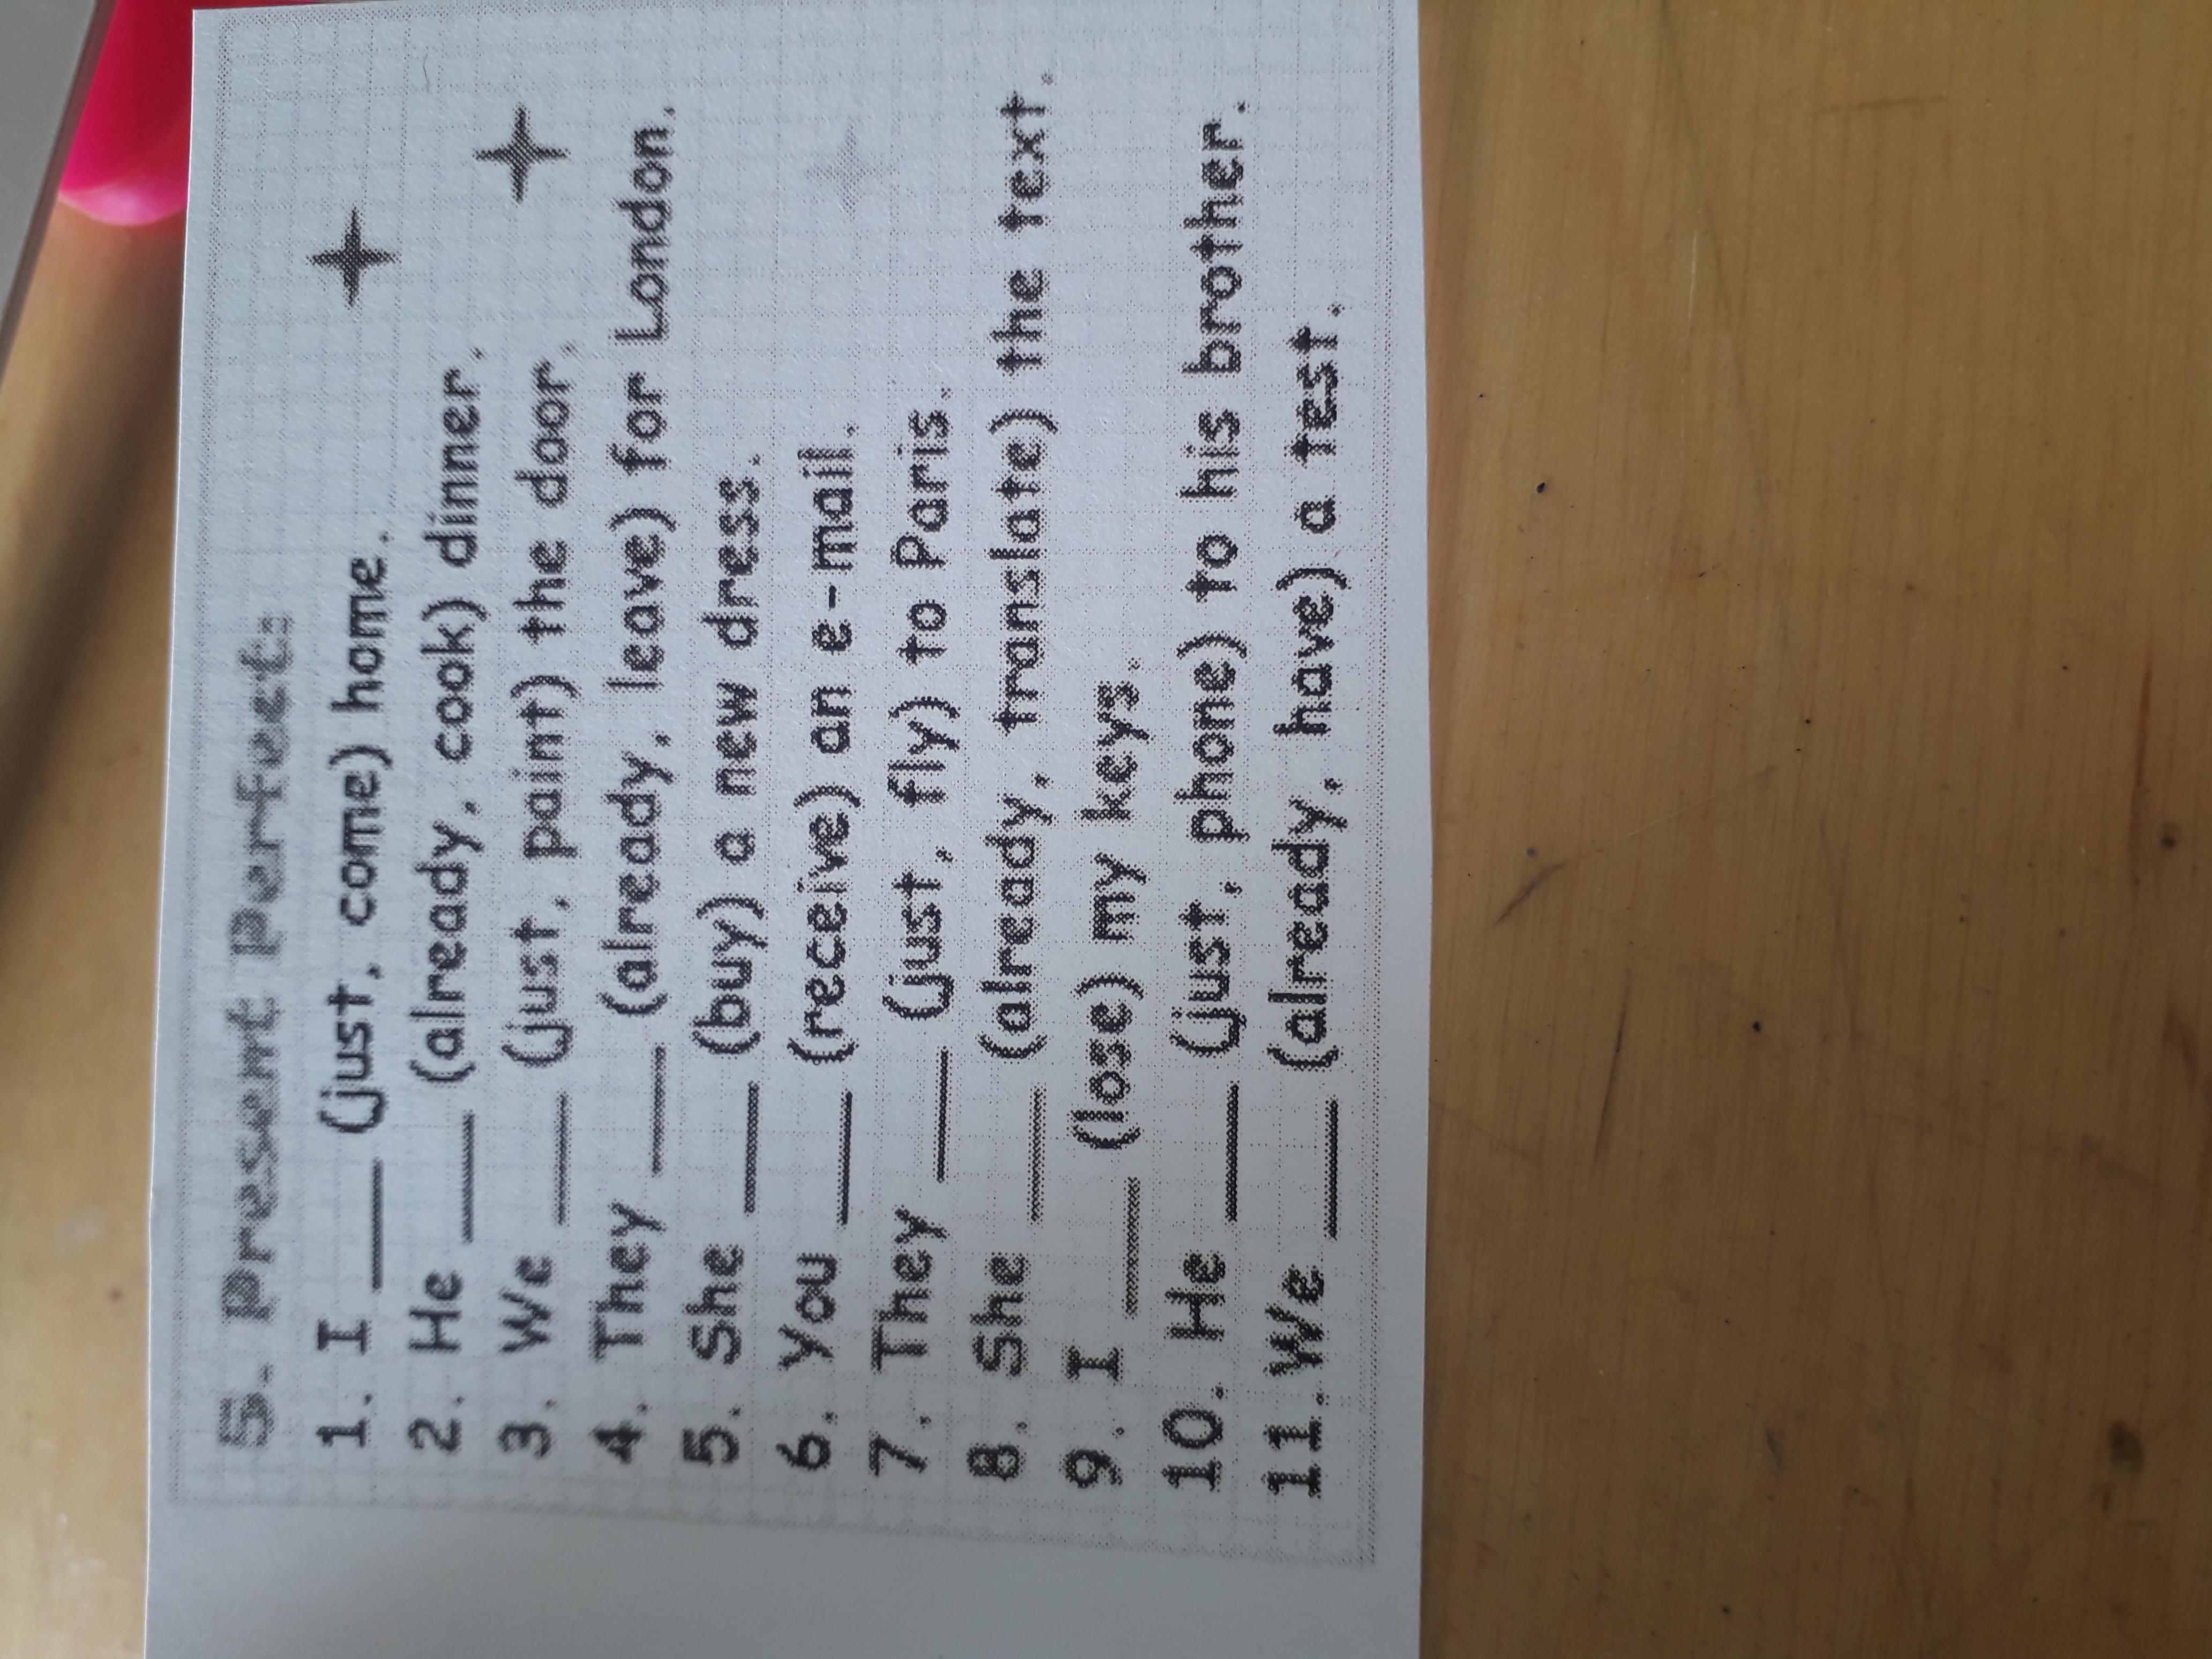 5. Present Perfect:
1. I ____ (just, come) home.
2. He ____ (already, cook) dinner.
3. We ____ (just, paint) the door.
4. They ____ (already, leave) for London.
5. She ____ (buy) a new dress.
6. You ____ (receive) an e-mail.
7. They ____ (just, fly) to Paris.
8. She ____ (already, translate) the text.
9. I ____ (lose) my keys.
10. He ____ (just, phone) to his brother.
11. We ____ (already, have) a test.